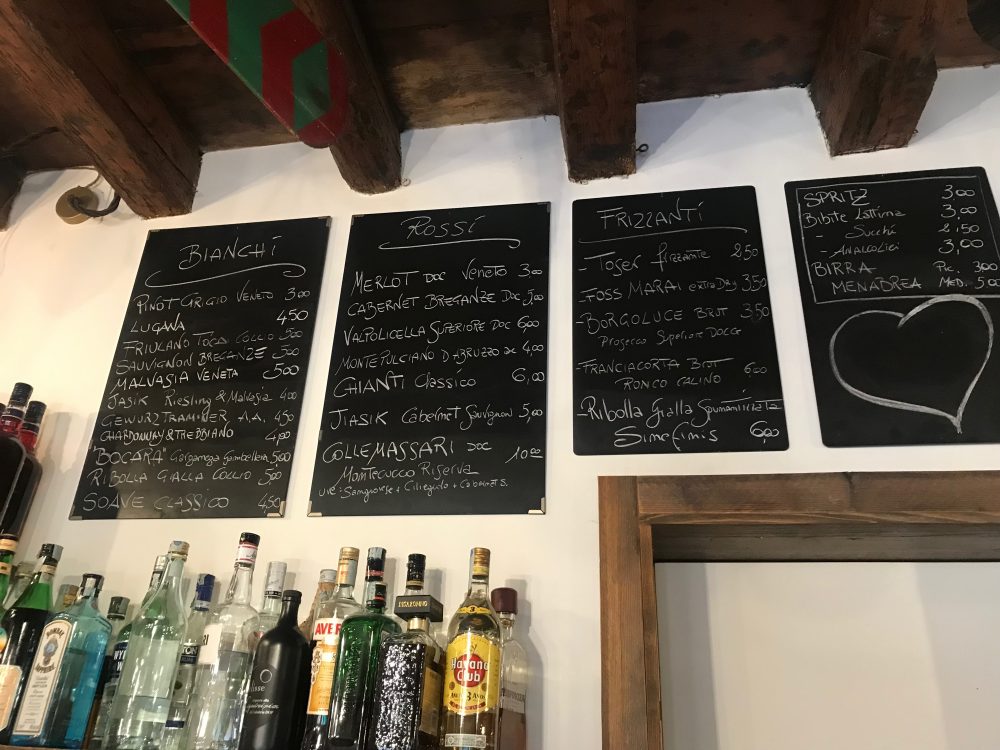 BIANCHI
PINOT GRIGIO VENETO 3,00
LUGANA 4,50
FRIULANO TOCAI COLLIO 5,00
SAUVIGNON BREGANZE 5,00
MALVASIA VENETA 5,00
JASIK Riesling & Malvasia 4,00
GEWURZTRAMINER A.A. 4,50
CHARDONNAY & TREBBIANO 4,00
"BOCARA" Garganega Gambellara 5,00
RIBOLLA GIALLA COLLIO 5,00
SOAVE CLASSICO 4,50
ROSSI
MERLOT DOC VENETO 3,00
CABERNET BREGANZE DOC 5,00
VALPOLICELLA SUPERIORE DOC 6,00
MONTEPULCIANO D'ABRUZZO DOC 4,00
CHIANTI CLASSICO 6,00
JIASIK Cabernet Sauvignon 5,00
COLLEMASSARI DOC 10,00
MONTECUCCO RISERVA
UVE: Sangiovese + Ciliegiolo + Cabernet S.
FRIZZANTI
- TOSER frizzante 2,50
- FOSS MARAI extra DRY 3,50
- BORGOLUCE BRUT 3,50
Prosecco Superiore DOCG
- FRANCIACORTA BRUT 6,00
RONCO CALINO
- RIBOLLA Gialla Spumantizzata
Simefimis 6,00
SPRITZ 3,00
Bibite Lattina 3,00
Succhi 2,50
- ANALCOLICI 3,00
BIRRA Pic. 3,00
MENADREA MED. 5,00
BOMBAY
DISARONNO
Havana
Club